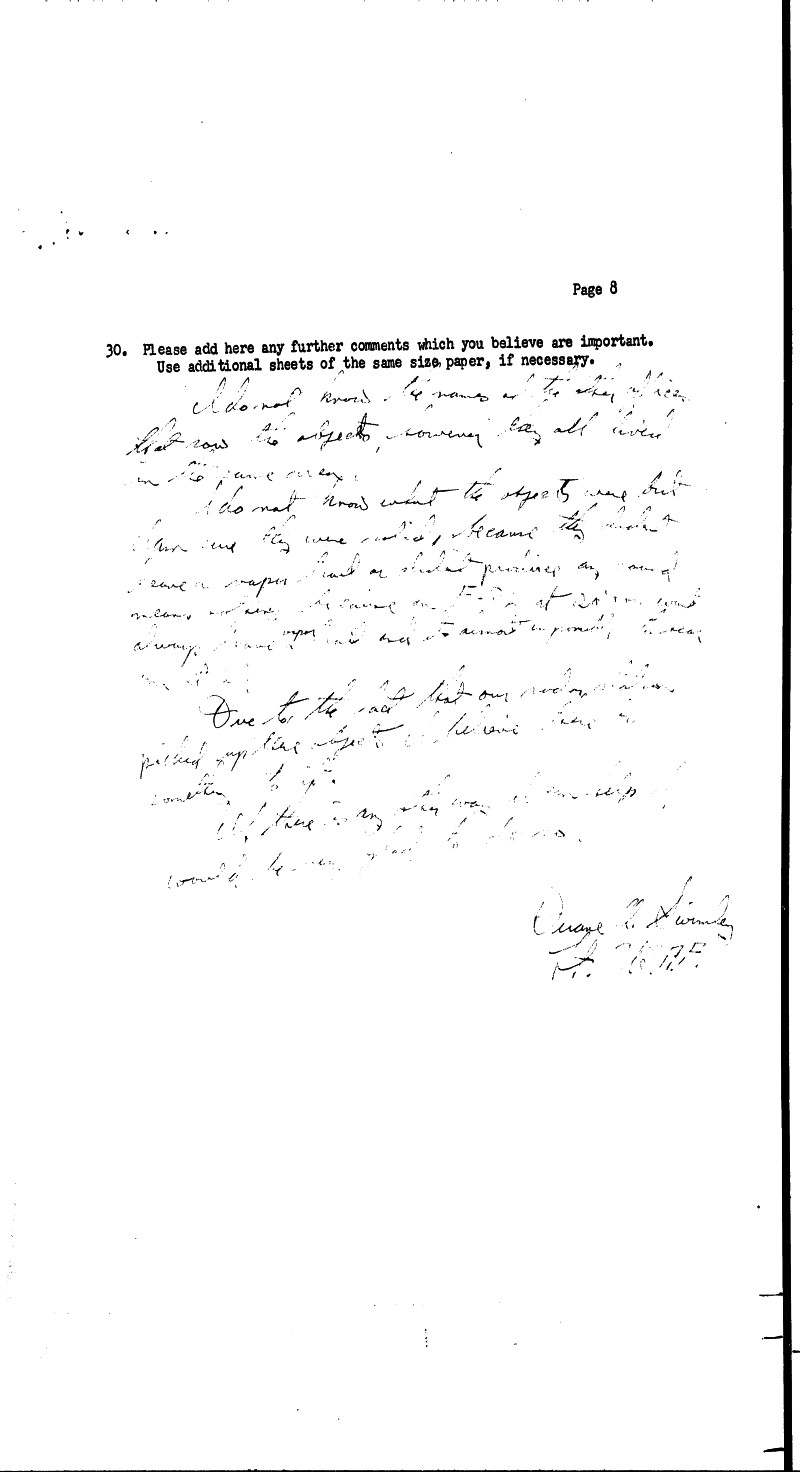 Page 8
30. Please add here any further comments which you believe are important.
Use additional sheets of the same size paper, if necessary.
I do not know the names of the other officers
that saw the objects, however they all lived
in the same area.
I do not know what the objects were but
sure they were solid, because they didnt
leave a vapor trail or didnt produce any sound
means nothing because an at
always leave vapor trail and its almost impossible to hear
Due to the fact that our radar station
picked up these objects I believe there is
something to it.
If there is any other way I can help I
would be very glad to do so.
Duane
Lt. U.S.A.F.